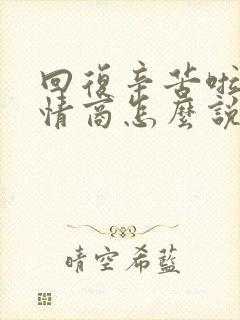 回復辛苦啦
情商怎麼說
晴空希藍